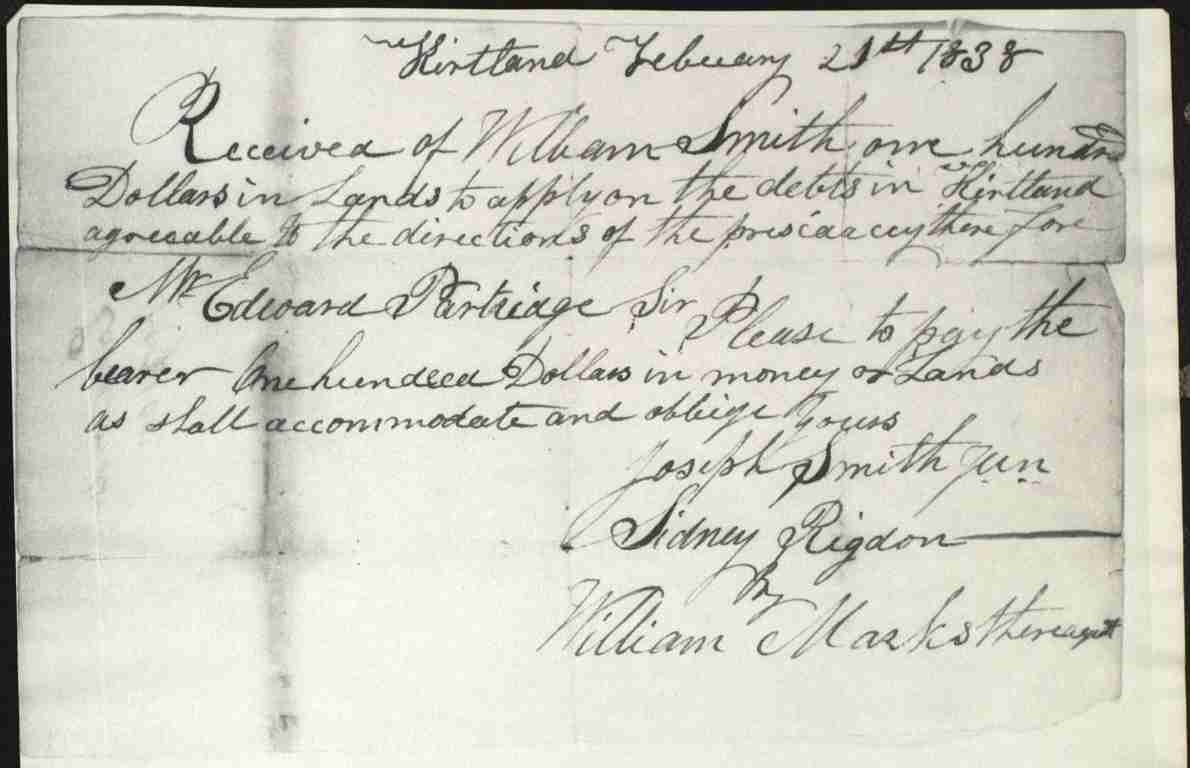 Kirtland February 21th 1838
Received of William Smith one hundred
Dollars in Lands to apply on the debts in Kirtland
agreeable to the directions of the therefore
Mr Edward Partridge Sir Please to pay the
bearer One hundred Dollars in money or Lands
as shall accommodate and obliege yours
Joseph Smith Jun
Sidney Rigdon
By
William Marks